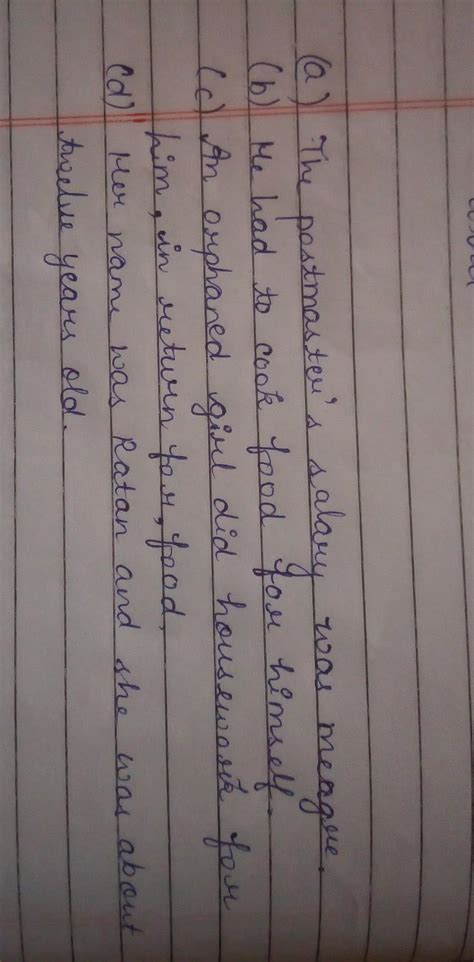 (a) The postmaster's salary was meagre.
(b) He had to cook food for himself.
(c) An orphaned girl did housework for
him, in return for, food,
(d) Her name was Ratan and she was about
twelve years old.